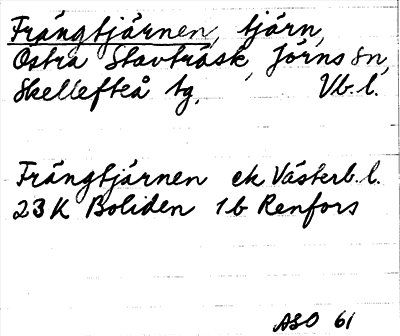 Frängtjärnen, tjärn,
Östra Stavträsk, Jörns sn,
Skellefteå tg, Vb. l.
Frängtjärnen ek Västerb. l.
23 K Boliden 1 b Renfors
ASO 61